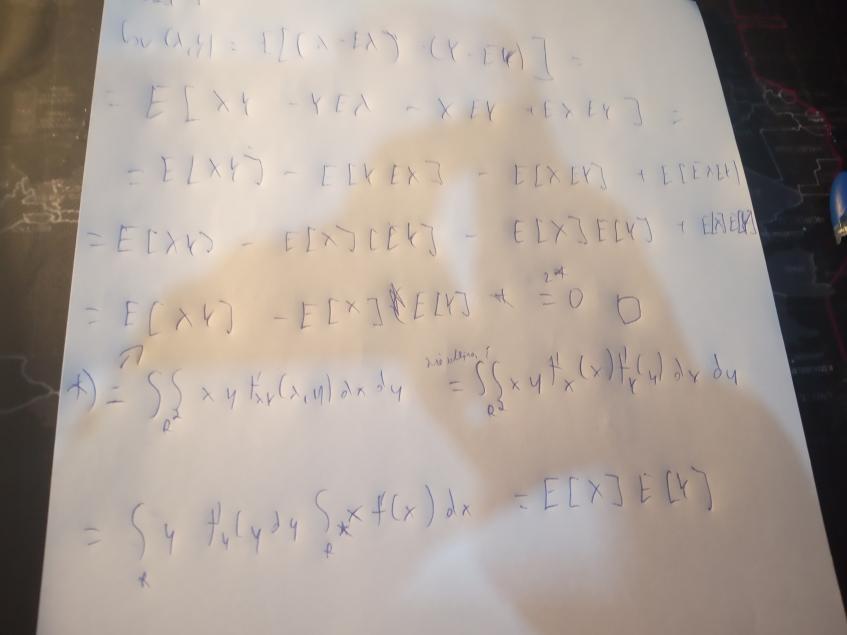 Cov(X,Y) = E[(X-EX)·(Y-EY)] =
= E[XY - YEX - XEY + EXEY] =
= E[XY] - E[YEX] - E[XEY] + E[EXEY]
= E[XY] - E[X]E[Y] - E[X]E[Y] + E[X]E[Y]
= E[XY] - E[X]E[Y] = 0 □
*) = ∬_{R²} xy f_{XY}(x,y) dx dy = ∬_{R²} xy f_X(x) f_Y(y) dx dy
= ∫_R y f_Y(y dy ∫_R x f(x) dx = E[X]E[Y]